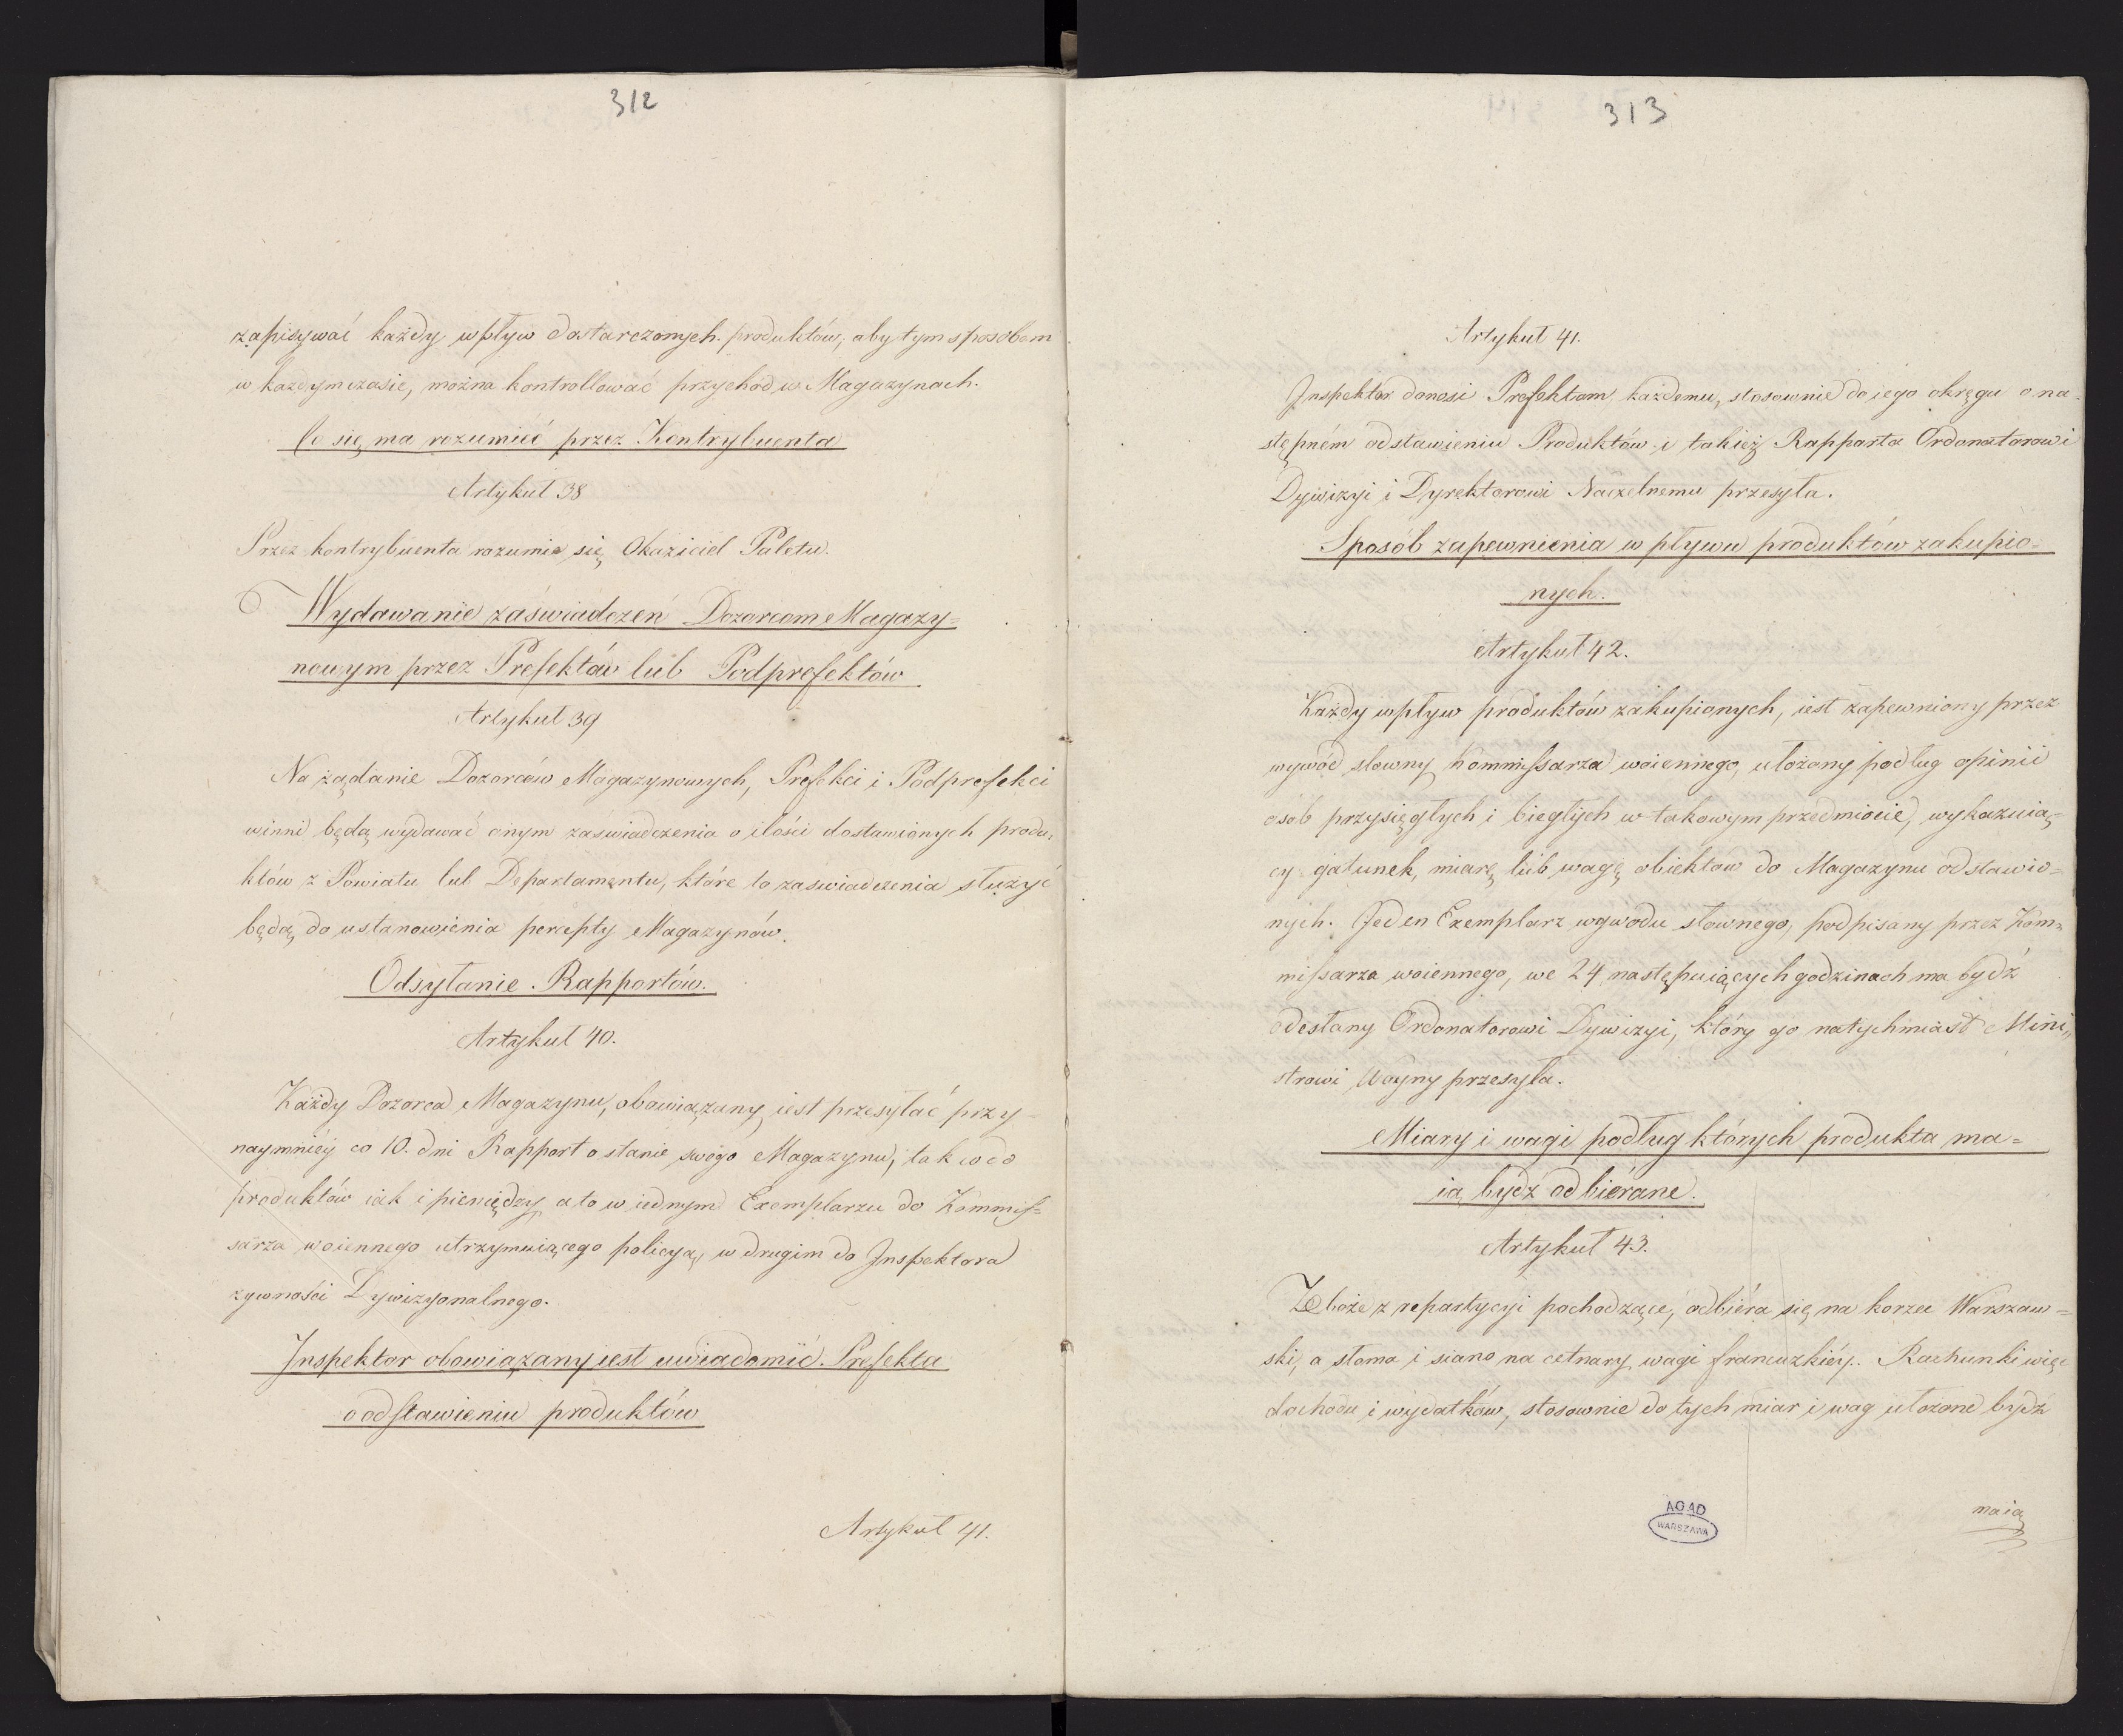 312
zapisywać każdy wpływ dostarczonych produktów, aby tym sposobem
w każdym czasie, można kontrollować przychód w Magazynach.
Co się ma rozumieć przez Kontrybuenta
Artykuł 38
Przez kontrybuenta rozumie się Okaziciel Paletu.
Wydawanie zaświadczeń Dozorcom Magazy=
nowym przez Prefektów lub Podprefektów
Artykuł 39
Na żądanie Dozorców Magazynowych, Prefekci i Podprefekci
winni będą wydawać onym zaświadczenia o ilości dostawionych produ=
któw z Powiatu lub Departamentu, które to zaswiadczenia służyć
będą do ustanowienia percepty Magazynów.
Odsyłanie Rapportów.
Artykuł 40.
Każdy Dozorca Magazynu, obowiązany iest przesyłać przy
naymniéy co 10. dni Rapport o stanie swego Magazynu, tak co do
produktów iak i pieniędzy, a to w iednym Exemplarzu do Kommis=
sarza woiennego utrzymuiącego policyą, w drugim do Inspektora
żywności Dywizyonalnego.
Inspektor obowiązany iest uwiadomić Prefekta
o odstawieniu produktów
Artykuł 41.
313
Artykuł 41.
Inspektor donosi Prefektom każdemu, stosownie do iego okręgu o na=
stępném odstawieniu Produktów i takież Rapporta Ordonatorowi
Dywizyi i Dyrektorowi Naczelnemu przesyła.
Sposób zapewnienia wpływu produktów zakupio=
nych.
Artykuł 42.
Każdy wpływ produktów zakupionych, iest zapewniony przez
wywód słowny Kommissarza woiennego, ułożony podług opinii
osób przysięgłych i biegłych w takowym przedmiocie, wykazuią=
cy gatunek, miarę lub wagę obiektow do Magazynu odstawio=
nych. Jeden Exemplarz wywodu słownego, podpisany przez Kom=
missarza woiennego, we 24 następuiących godzinach ma bydź
odesłany Ordonatorowi Dywizyi, który go natychmiast Mini=
strowi Woyny przesyła.
Miary i wagi podług których produkta ma=
ią bydź odbiérane.
Artykuł 43.
Zboże z repartycyi pochodzące, odbiéra się na korzec Warszaw=
ski, a słoma i siano na cetnary wagi francuzkiéy. Rachunki więc
dochodu i wydatków, stosownie do tych miar i wag ułożone bydź
maią
AGAD
WARSZAWA